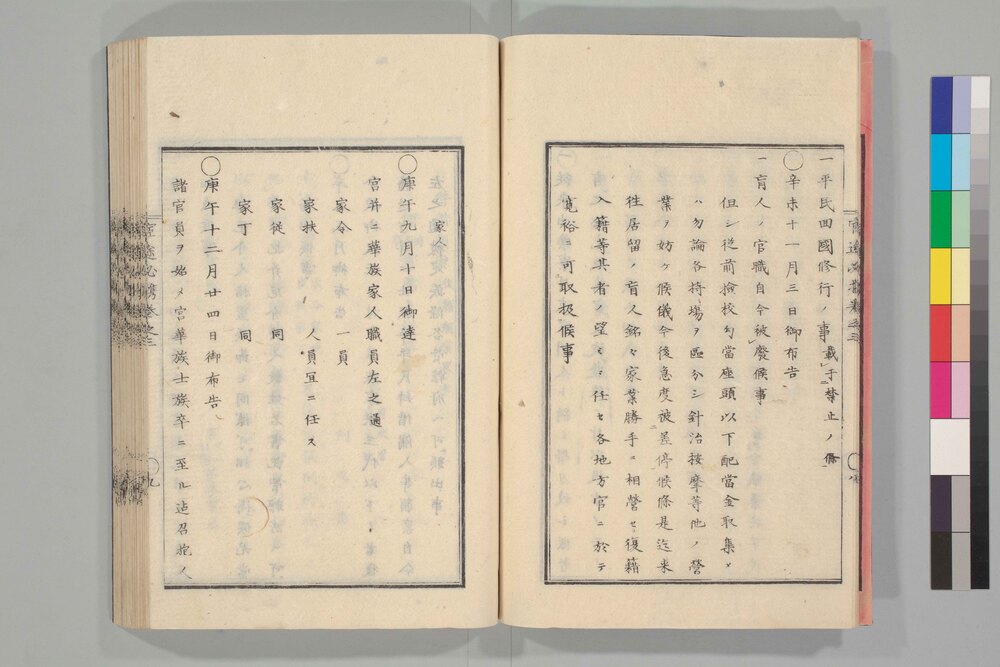 一平民回國修行ノ事載于禁止ノ條
〇辛未十一月三日御布告
一盲人ノ官職自今被廢候事
但シ従前撿校勾當座頭以下配當金取集メ
ハ勿論各持場ヲ區分シ針治按摩等他ノ營
業ヲ妨ケ候儀今後急度被差停候條是迄来
徃居留ノ盲人銘々家業勝手ニ相營セ復籍
入籍等其者ノ望ミニ任セ各地方官ニ於テ
寛裕ニ可取扱候事
家人
〇庚午九月十日御達
宮并ニ華族家人職員左之通
家令 一員
家扶 人員宜ニ任ス
家従 同
家丁 同
〇庚午十二月廿四日御布告
諸官員ヲ始メ宮華族士族卒ニ至ル迄召抱人